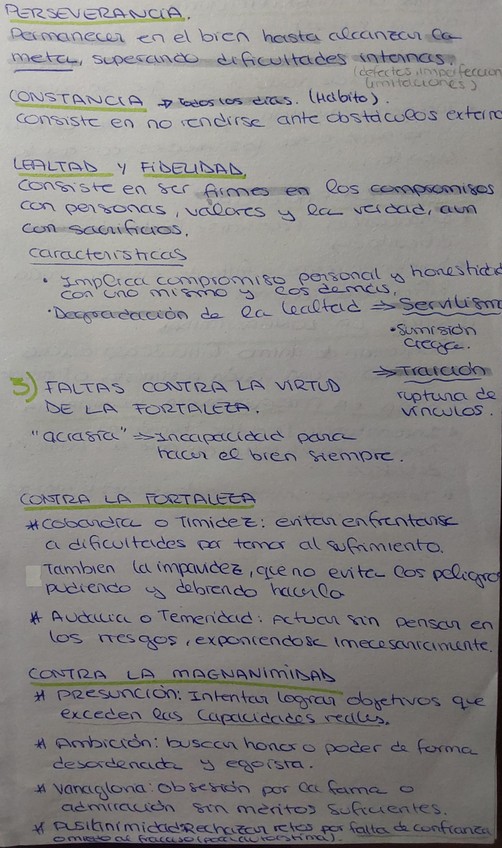 PERSEVERANCIA.
Permanecer en el bien hasta alcanzar la
meta, superando dificultades internas.
(defectos, imperfeccion
limitaciones)
CONSTANCIA → todos los días. (Hábito).
consiste en no rendirse ante obstáculos externo
LEALTAD Y FIDELIDAD
consiste en ser firmes en los compromisos
con personas, valores y la verdad, aun
con sacrificios.
características
• Implica compromiso personal y honestidad
con uno mismo y los demás.
• Degradación de la lealtad ⇒ Servilismo
• Sumisión
ciega.
⇒ Traición
ruptura de
vínculos.
3) FALTAS CONTRA LA VIRTUD
DE LA FORTALEZA.
"acrasia" ⇒ Incapacidad para
hacer el bien siempre.
CONTRA LA FORTALEZA
* Cobardía o Timidez: evitan enfrentarse
a dificultades por temor al sufrimiento.
Tambien la impavidez, que no evita los peligros
pudiendo y debiendo hacerlo
* Audacia o Temeridad: Actuar sin pensar en
los riesgos, exponiendose innecesariamente.
CONTRA LA MAGNANIMIDAD
* Presunción: Intentar lograr objetivos que
exceden las capacidades reales.
* Ambición: buscan honor o poder de forma
desordenada y egoísta.
* Vanagloria: Obsesión por la fama o
admiración sin méritos suficientes.
* Pusilanimidad: Rechazar retos por falta de confianza
o miedo al fracaso (poca autoestima).